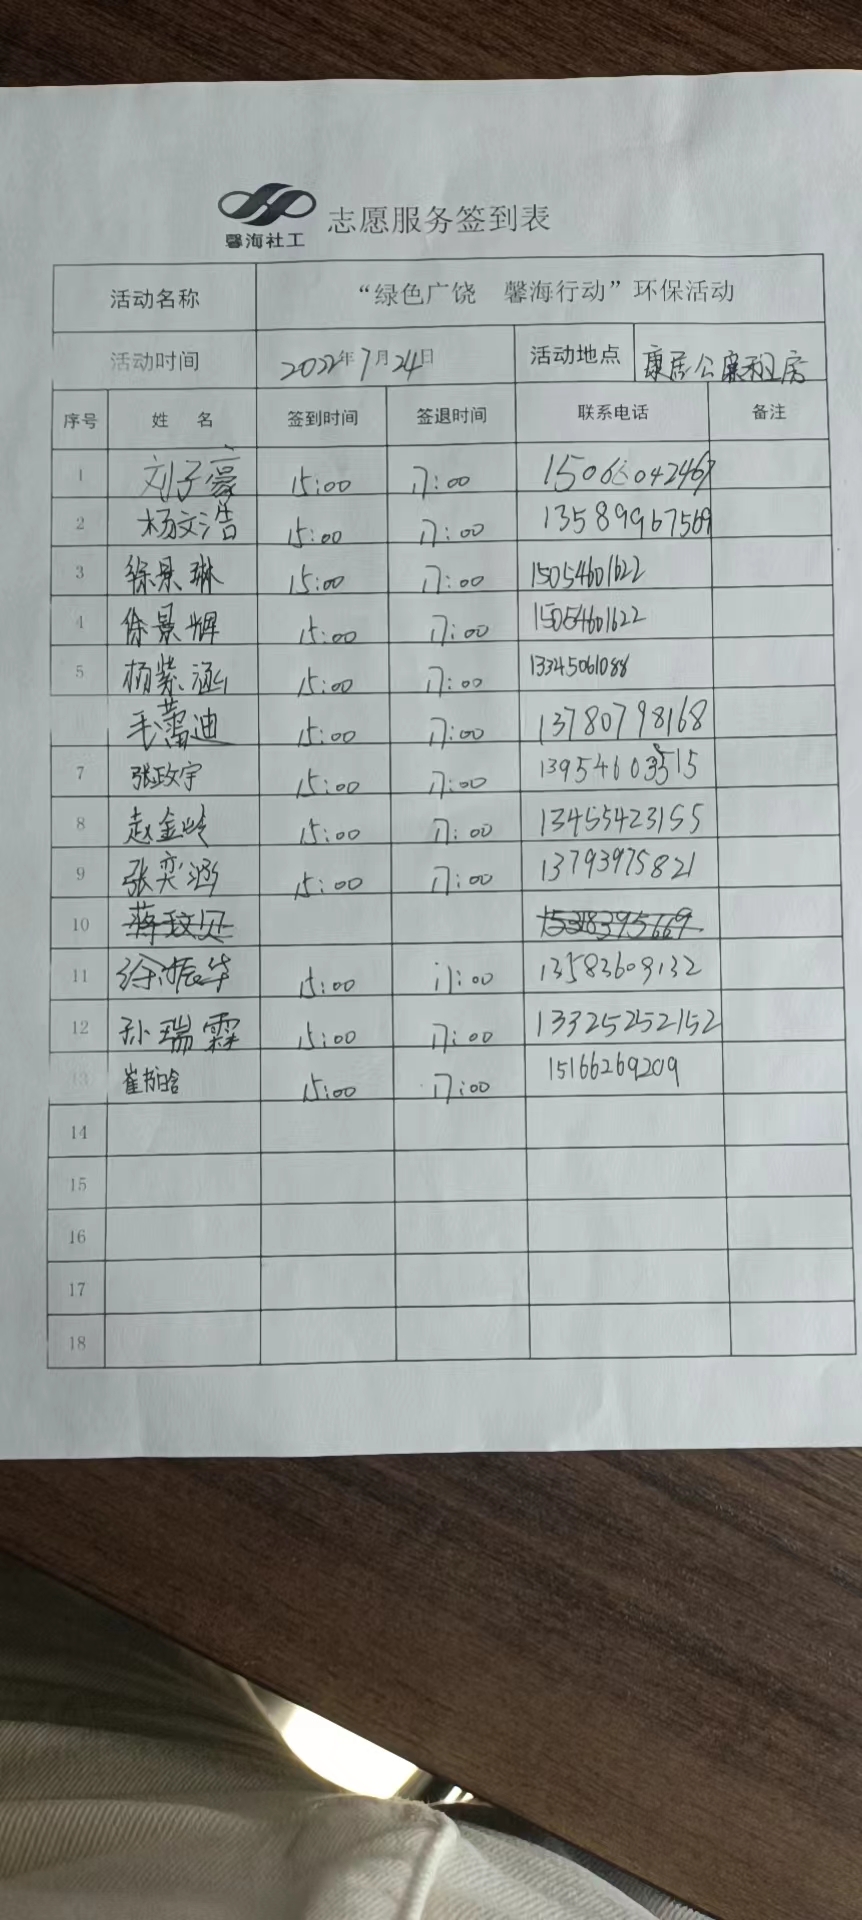 馨海社工 志愿服务签到表
活动名称 “绿色广饶 馨海行动”环保活动
活动时间 2022年7月24日 活动地点 康居公廉租房
序号 姓 名 签到时间 签退时间 联系电话 备注
1 刘子豪 15:00 17:00 15066042467
2 杨文浩 15:00 17:00 13589967569
3 徐景琳 15:00 17:00 15054601622
4 徐景辉 15:00 17:00 15054601622
5 杨紫涵 15:00 17:00 13345061088
毛蕾迪 15:00 17:00 13780798168
7 张政宇 15:00 17:00 13954603515
8 赵金岭 15:00 17:00 13455423155
9 张奕涵 15:00 17:00 13793975821
10
11 徐振华 15:00 17:00 13583609132
12 孙瑞霖 15:00 17:00 13325252152
13 15:00 17:00 15166269209
14
15
16
17
18